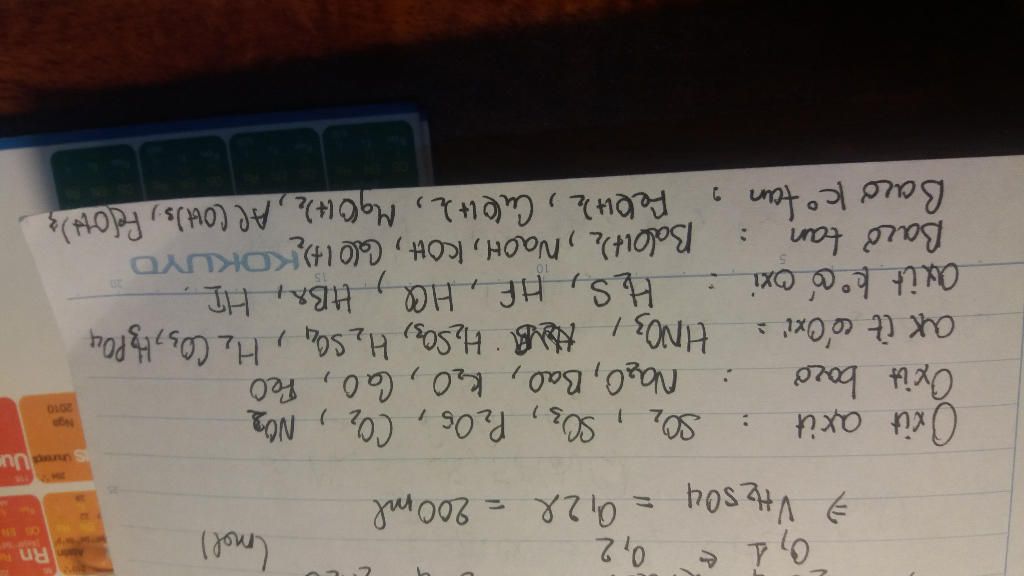 0,1 ← 0,2 (mol)
⇒ VH₂SO₄ = 0,2l = 200ml
Oxit axit : SO₂, SO₃, P₂O₅, CO₂, NO₂
Oxit bazơ : Na₂O, BaO, K₂O, CaO, FeO
axit có Oxi : HNO₃, H₂SO₃, H₂SO₄, H₂CO₃, H₃PO₄
axit k° có oxi : H₂S, HF, HCl, HBr, HI
Bazơ tan : Ba(OH)₂, NaOH, KOH, Ca(OH)₂
KOKUYO
Bazơ k° tan : Fe(OH)₂, Cu(OH)₂, Mg(OH)₂, Al(OH)₃, Fe(OH)₃
Rn
Uu
Nga
2010